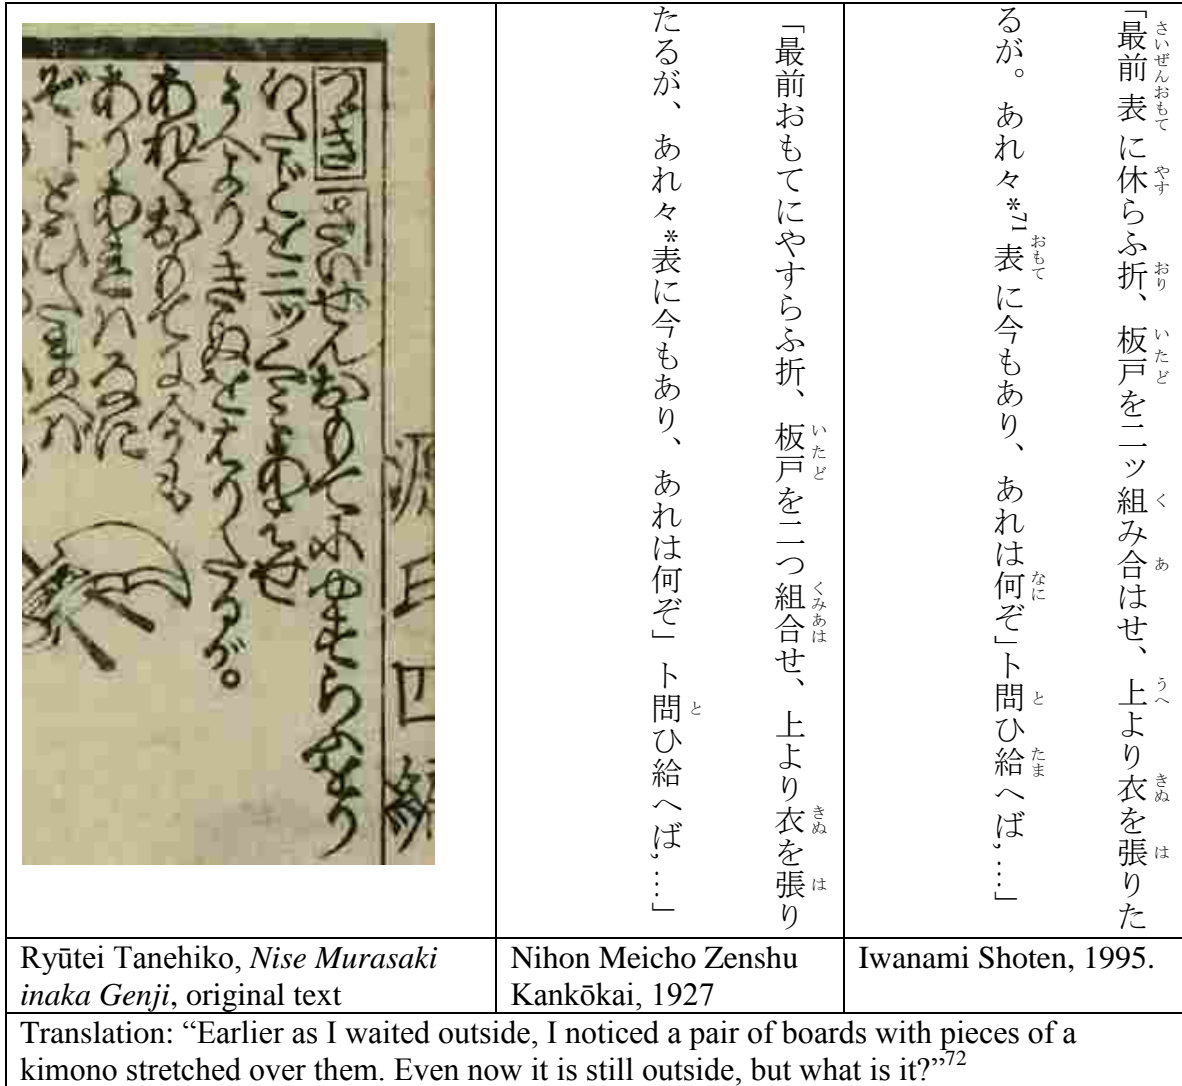 源氏四編
つぎ 「さいぜんおもてにやすらふをり
いたどを二ツくミあはせ
うへよりきぬをはりたるが。
あれ〱おもてに今も
ありあれハなに
ぞトとひたまへバ
「最前おもてにやすらふ折、板戸(いたど)を二つ組合(くみあは)せ、上より衣(きぬ)を張(は)り
たるが、あれ々*表に今もあり、あれは何ぞ」ト問(と)ひ給へば,…」
「最前(さいぜん)表(おもて)に休(やす)らふ折(おり)、板戸(いたど)を二ッ組(く)み合(あ)はせ、上(うへ)より衣(きぬ)を張(は)りた
るが。あれ々*71表(おもて)に今もあり、あれは何(なに)ぞ」ト問(と)ひ給(たま)へば,…」
Ryūtei Tanehiko, Nise Murasaki
inaka Genji, original text
Nihon Meicho Zenshu
Kankōkai, 1927
Iwanami Shoten, 1995.
Translation: “Earlier as I waited outside, I noticed a pair of boards with pieces of a
kimono stretched over them. Even now it is still outside, but what is it?”72